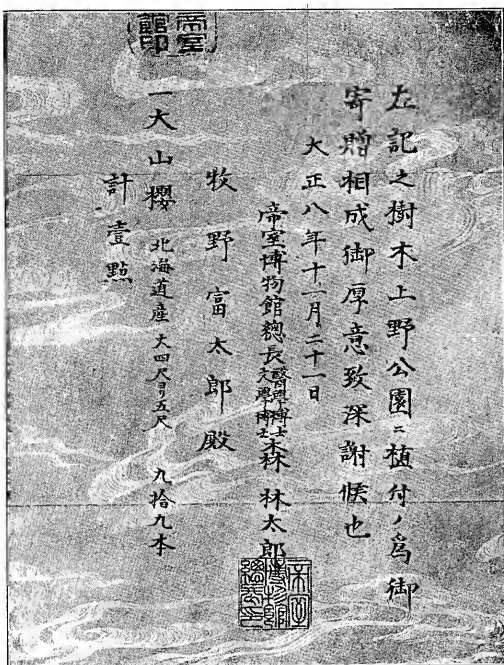 左記之樹木上野公園ニ植付ノ爲御
寄贈相成御厚意致深謝候也
大正八年十一月二十一日
帝室博物館總長醫學博士文學博士森林太郎
牧野富太郎殿
一大山櫻 北海道産 丈四尺ヨリ五尺 九拾九本
計壹點